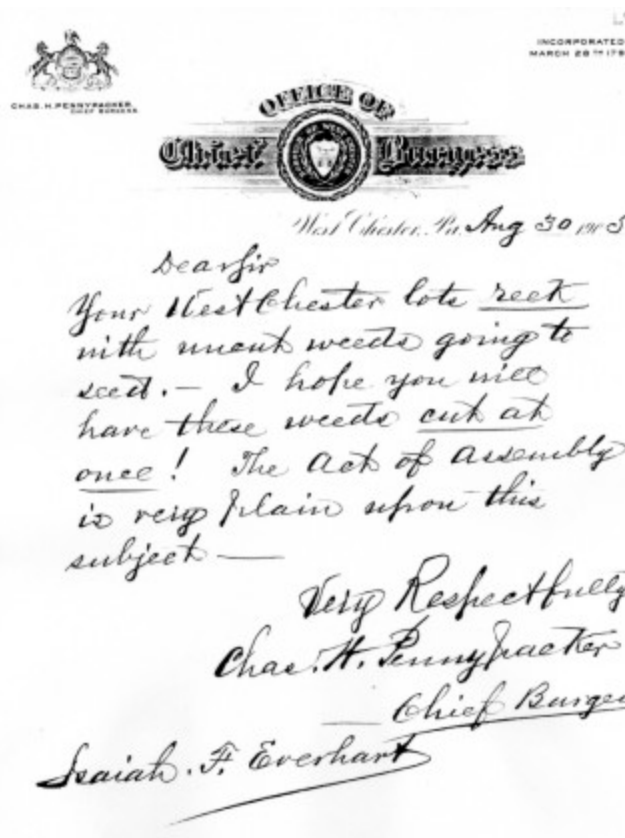 INCORPORATED
MARCH 28TH 179
CHAS. H. PENNYPACKER,
CHIEF BURGESS
OFFICE OF
Chief Burgess
West Chester, Pa. Aug 30 1903
Dear Sir
Your West Chester lots reek
with uncut weeds going to
seed. — I hope you will
have these weeds cut at
once! The Act of Assembly
is very plain upon this
subject —
Very Respectfully
Chas. H. Pennypacker
— Chief Burge
Isaiah. F. Everhart